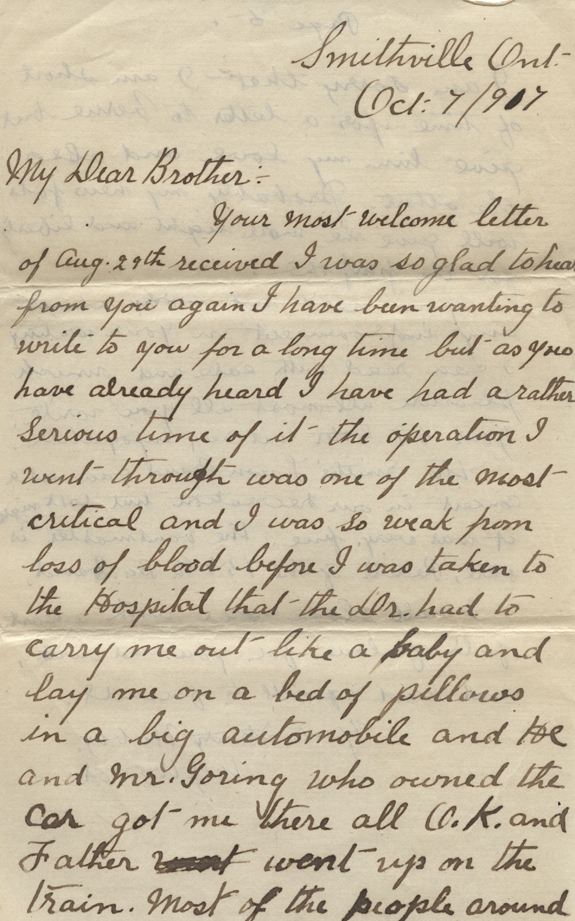 Smithville Ont.
Oct. 7/917
My Dear Brother:-
Your most welcome letter
of Aug. 29th received I was so glad to hear
from you again I have been wanting to
write to you for a long time but as you
have already heard I have had a rather
serious time of it the operation I
went through was one of the most
critical and I was so weak from
loss of blood before I was taken to
the Hospital that the Dr. had to
carry me out like a baby and
lay me on a bed of pillows
in a big automobile and He
and Mr. Goring who owned the
car got me there all O.K. and
Father went went up on the
train. Most of the people around